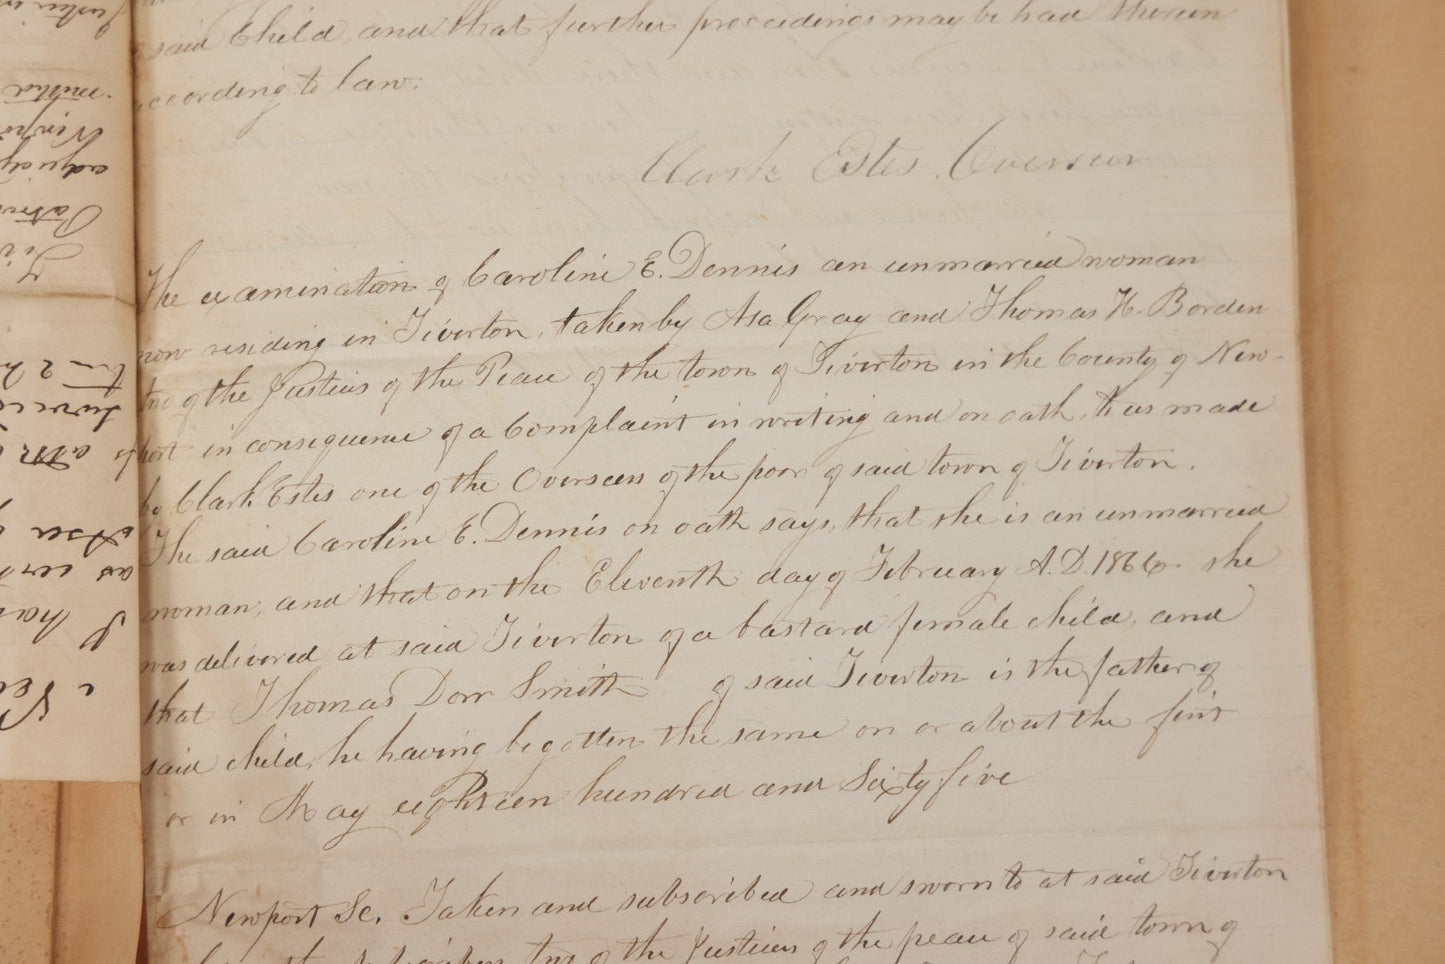 said Child, and that further proceedings may be had therein
according to law.
Clark Estes. Overseer
The examination of Caroline E. Dennis an unmarried woman
now residing in Tiverton, taken by Asa Gray and Thomas H. Borden
two of the Justices of the Peace of the town of Tiverton in the County of New-
port in consequence of a Complaint in writing and on oath, to us made
by Clark Estes one of the Overseers of the poor of said town of Tiverton.
The said Caroline E. Dennis on oath says, that she is an unmarried
woman, and that on the Eleventh day of February A.D. 1866. she
was delivered at said Tiverton of a bastard female child, and
that Thomas Dorr Smith of said Tiverton is the father of
said child, he having begotten the same on or about the first
or in May eighteen hundred and Sixty five
Newport Sc. Taken and subscribed and sworn to at said Tiverton
two of the Justices of the peace of said town of